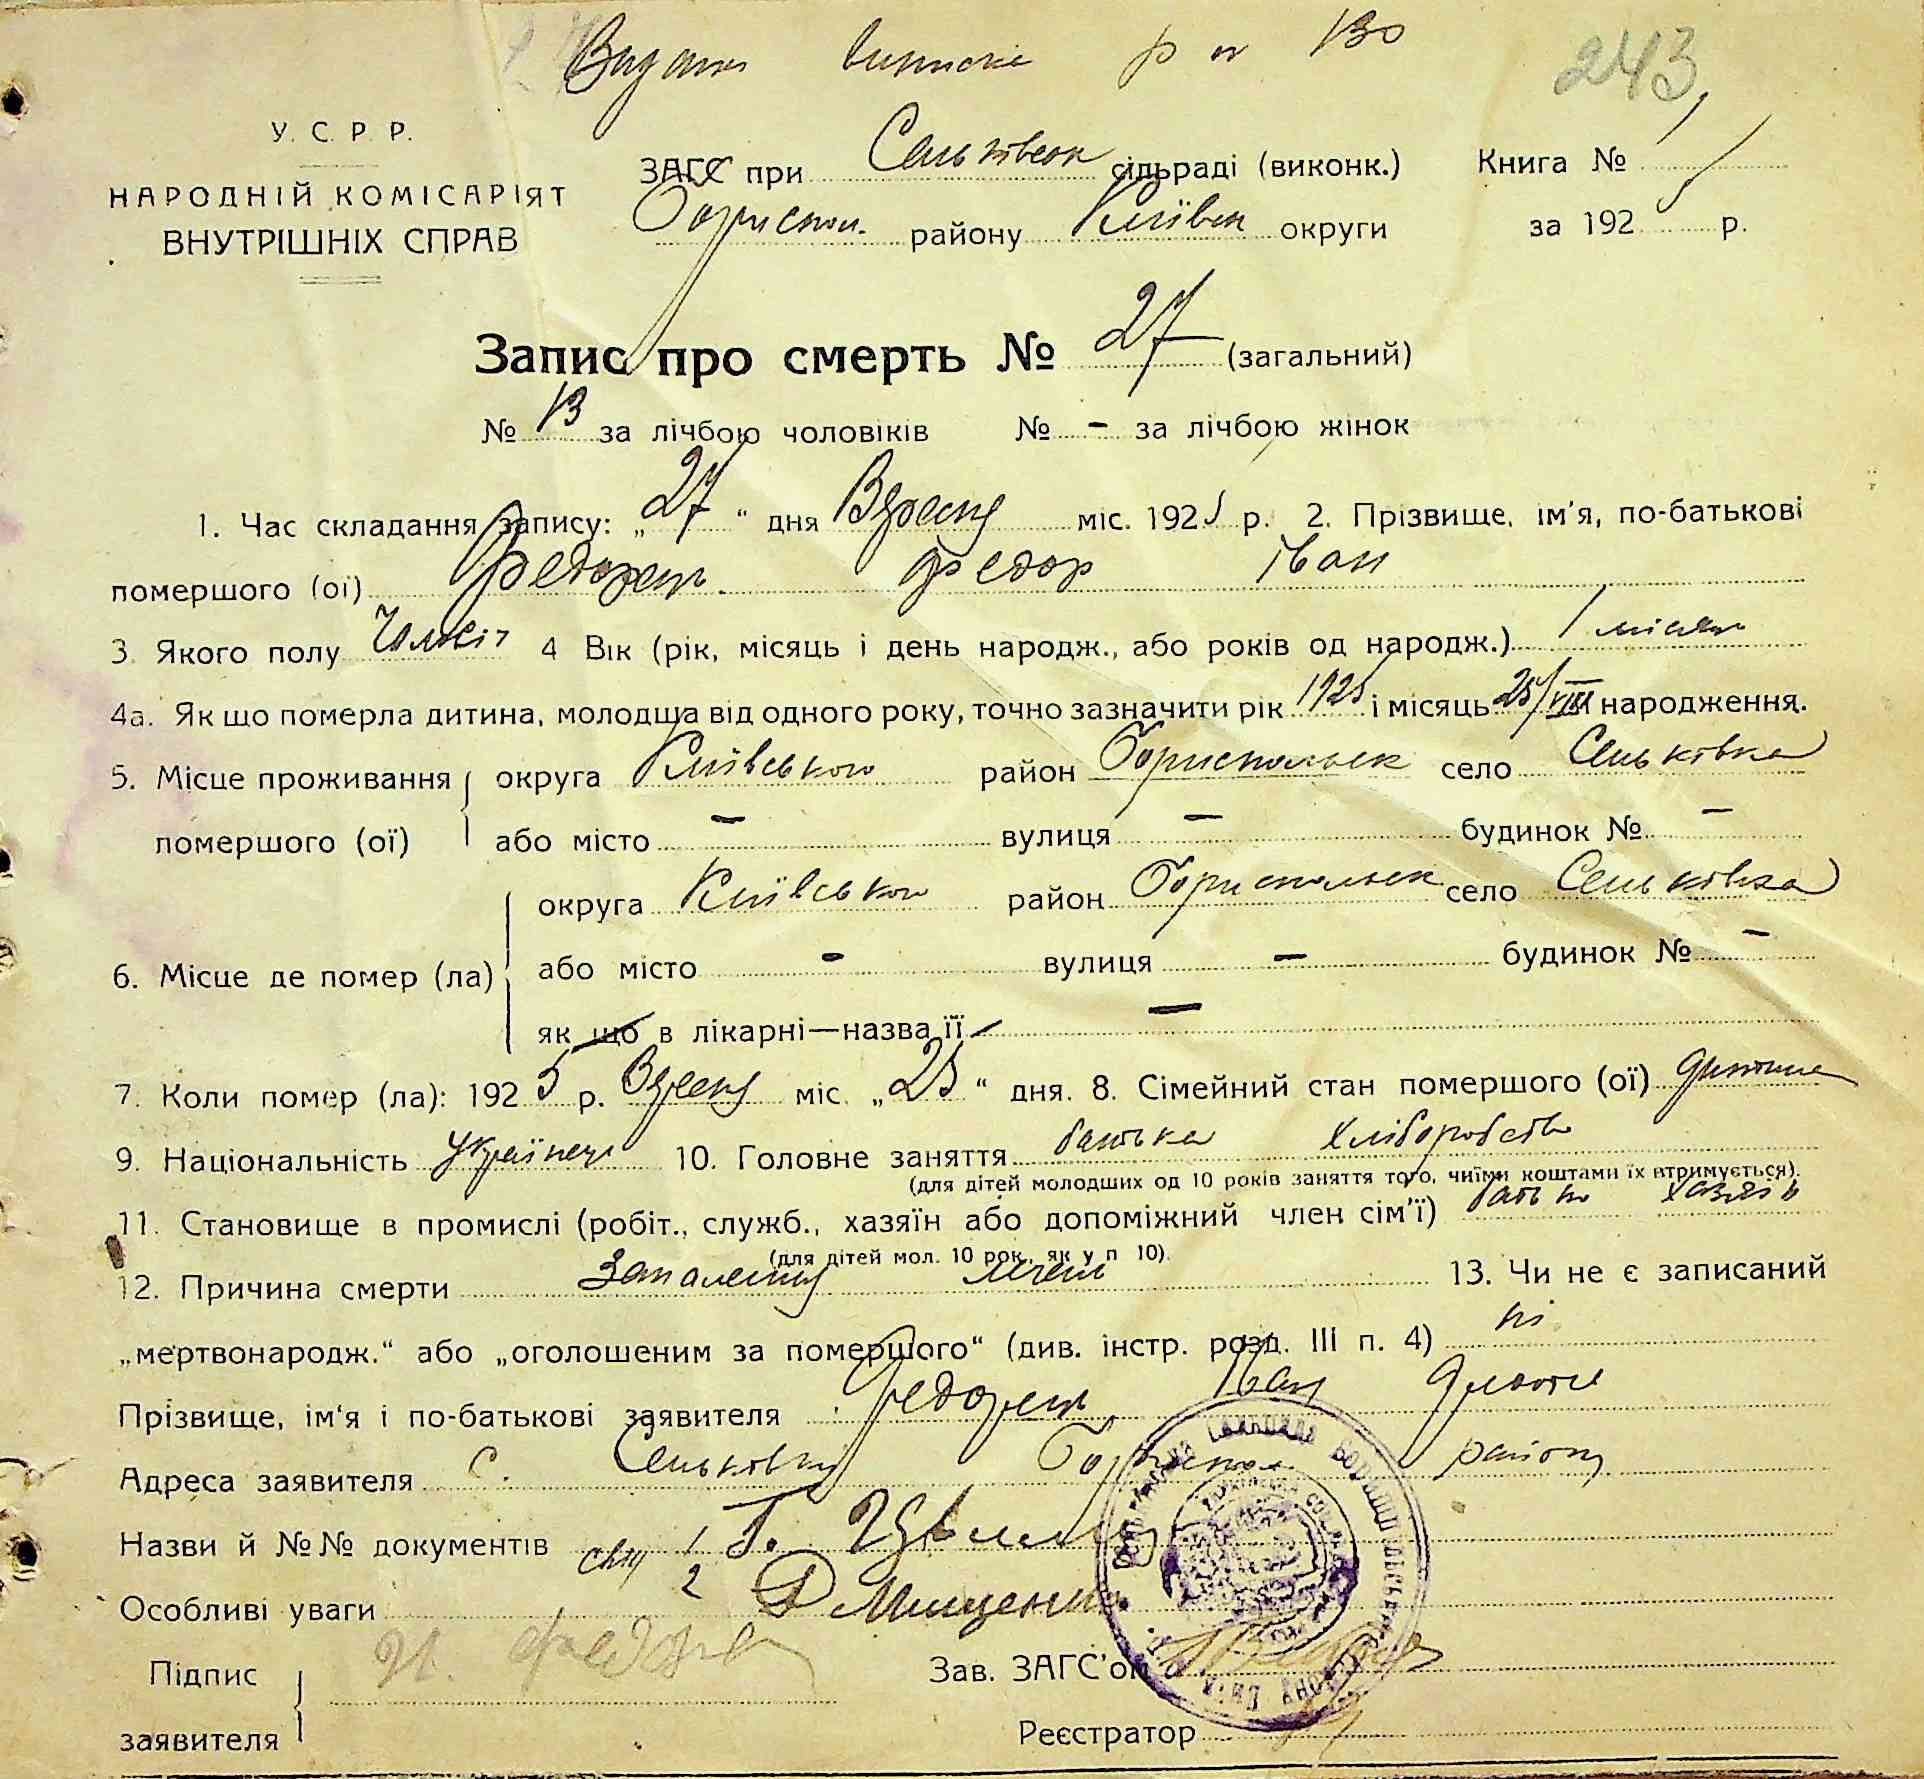 Видана виписка 130
243
У. С. Р. Р.
НАРОДНІЙ КОМІСАРІЯТ
ВНУТРІШНІХ СПРАВ
ЗАГС при Сеньківськ сільраді (виконк.) Книга № 1
Бориспол. району Київськ округи за 1925 р.
Запис про смерть № 27 (загальний)
№ 13 за лічбою чоловіків № - за лічбою жінок
1. Час складання запису: „27“ дня Вересня міс. 1925 р. 2. Прізвище, ім'я, по-батькові
помершого (ої) Федорець Федор Іван
3 Якого полу Чоловіч 4 Вік (рік, місяць і день народж., або років од народж.) 1 місяць
4а. Як що померла дитина, молодща від одного року, точно зазначити рік 1925 і місяць 25/VIII народження.
5. Місце проживання округа Київського район Бориспольск село Сеньківка
помершого (ої) або місто — вулиця — будинок № —
округа Київського район Бориспольск село Сеньківка
6. Місце де помер (ла) або місто - вулиця — будинок № —
як що в лікарні—назва її —
7. Коли помер (ла): 1925 р. Вересня міс. „25“ дня. 8. Сімейний стан помершого (ої) дитина
9. Національність Українець 10. Головне заняття батька хліборобство
(для дітей молодших од 10 років заняття того, чиїми коштами їх втримується).
11. Становище в промислі (робіт., служб., хазяїн або допоміжний член сім'ї) батько хазяїн
(для дітей мол. 10 рок., як у п 10).
12. Причина смерти Запалення легень 13. Чи не є записаний
„мертвонародж.“ або „оголошеним за помершого“ (див. інстр. розд. III п. 4) ні
Прізвище, ім'я і по-батькові заявителя Федорець Іван
Адреса заявителя с. Сеньківки Бориспол. району
Назви й №№ документів
Особливі уваги Мищенко
Підпис
заявителя
Зав. ЗАГС'ом
Реєстратор